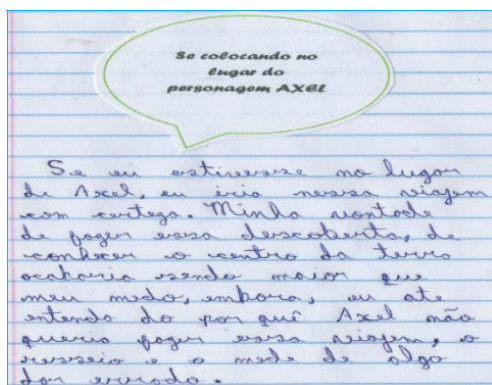 Se colocando no
lugar do
personagem AXEL
Se eu estivesse no lugar
de Axel, eu iria nessa viagem
com certeza. Minha vontade
de fazer essa descoberta, de
conhecer o centro da terra
acabaria sendo maior que
meu medo, embora, eu ate
entendo do por quê Axel não
queria fazer essa viajem, o
resseio e o medo de algo
dar errado.